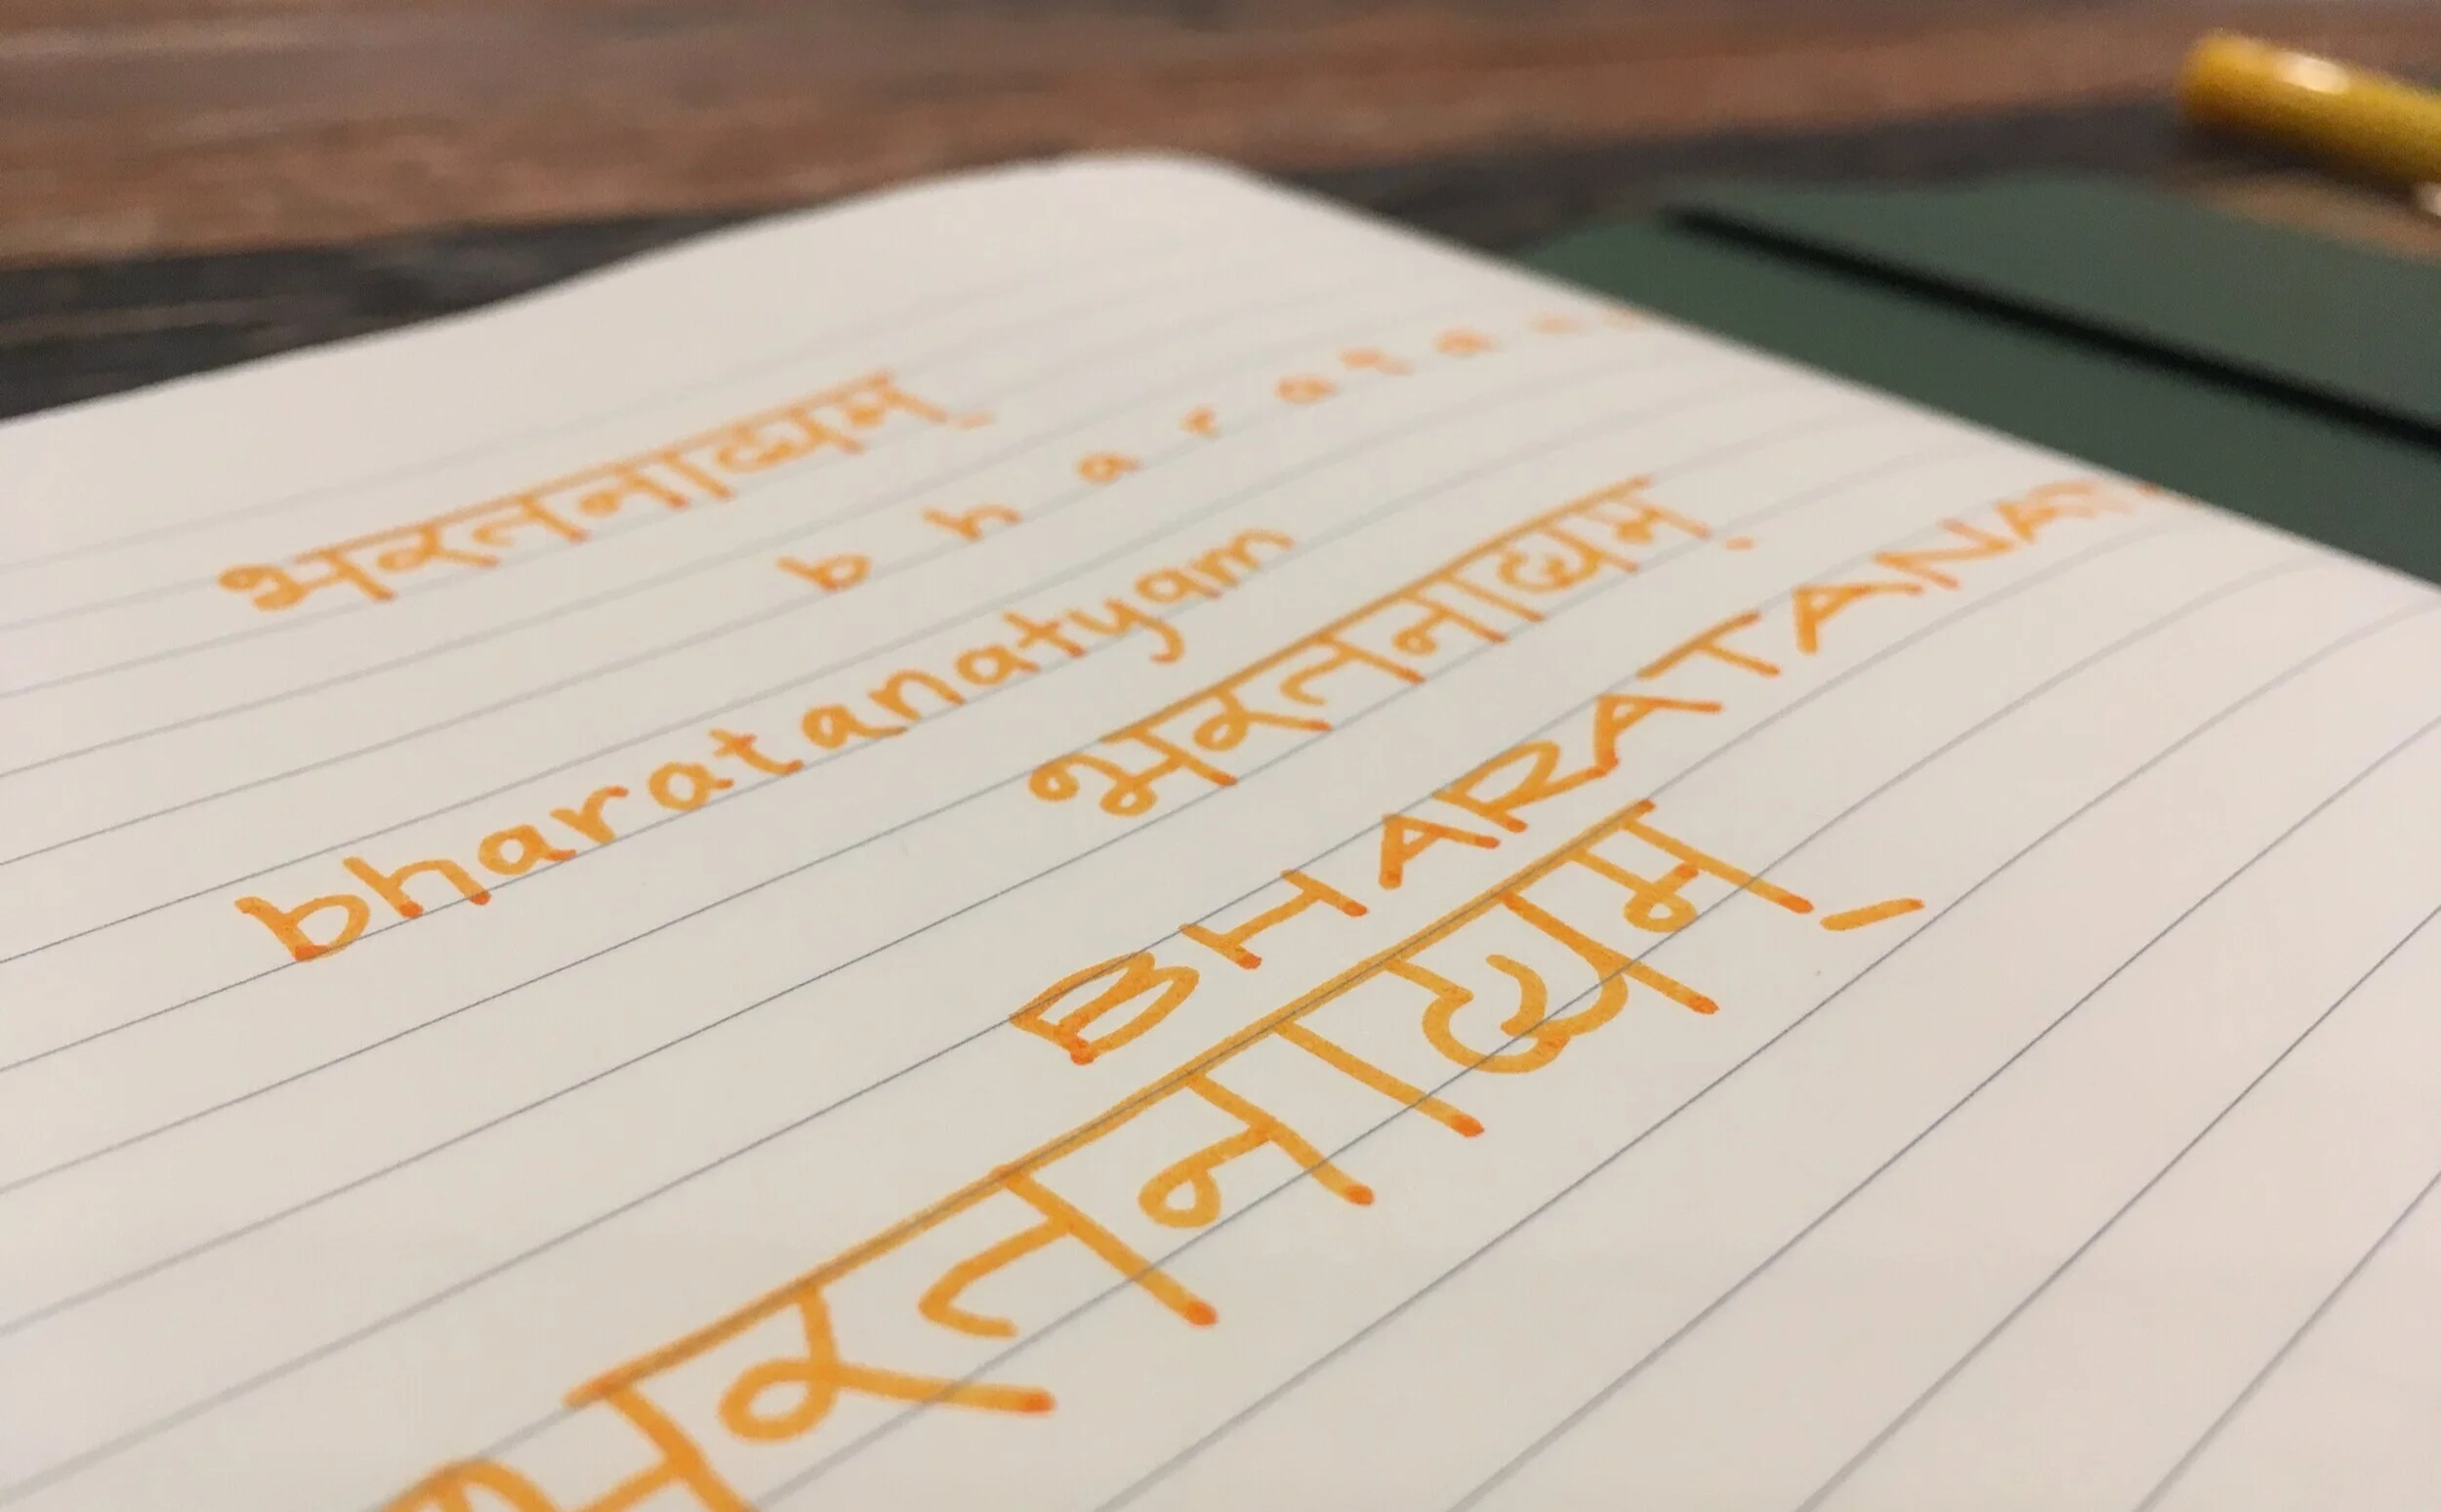 भरतनाट्यम्
b h a r a t a
bharatanatyam
भरतनाट्यम्
BHARATANAT
भरतनाट्यम्